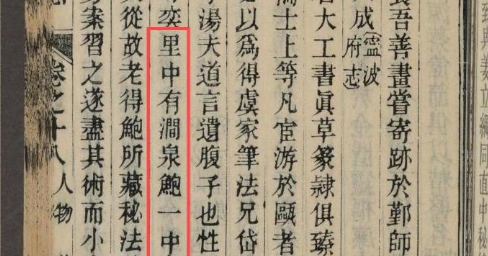 吾善畫嘗寄跡於鄞師
成寧波府志
大工書眞草篆隸俱臻
士上等凡宦游於甌者
之以爲得虞家筆法兄岱
湯夫道言遺腹子也性
奕里中有澗泉鮑一中
從故老得鮑所藏秘法
案習之遂盡其術而小
卷之十八 人物